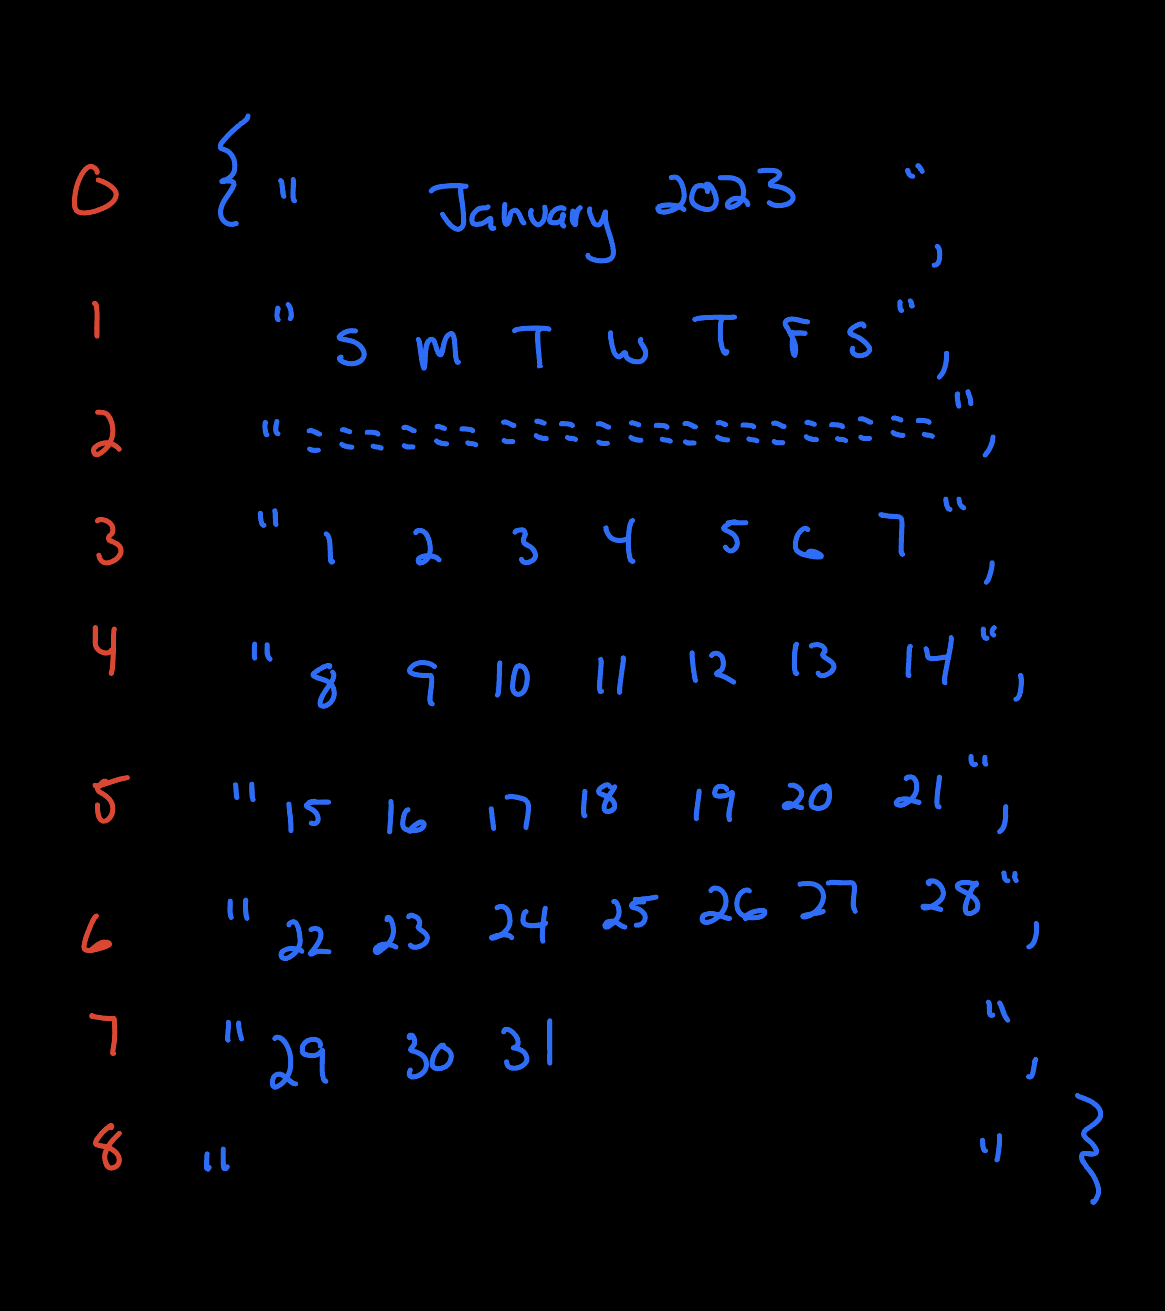 0 { " January 2023 ",
1 " S M T W T F S ",
2 " ==================== ",
3 " 1 2 3 4 5 6 7 ",
4 " 8 9 10 11 12 13 14 ",
5 " 15 16 17 18 19 20 21 ",
6 " 22 23 24 25 26 27 28 ",
7 " 29 30 31 ",
8 " " }